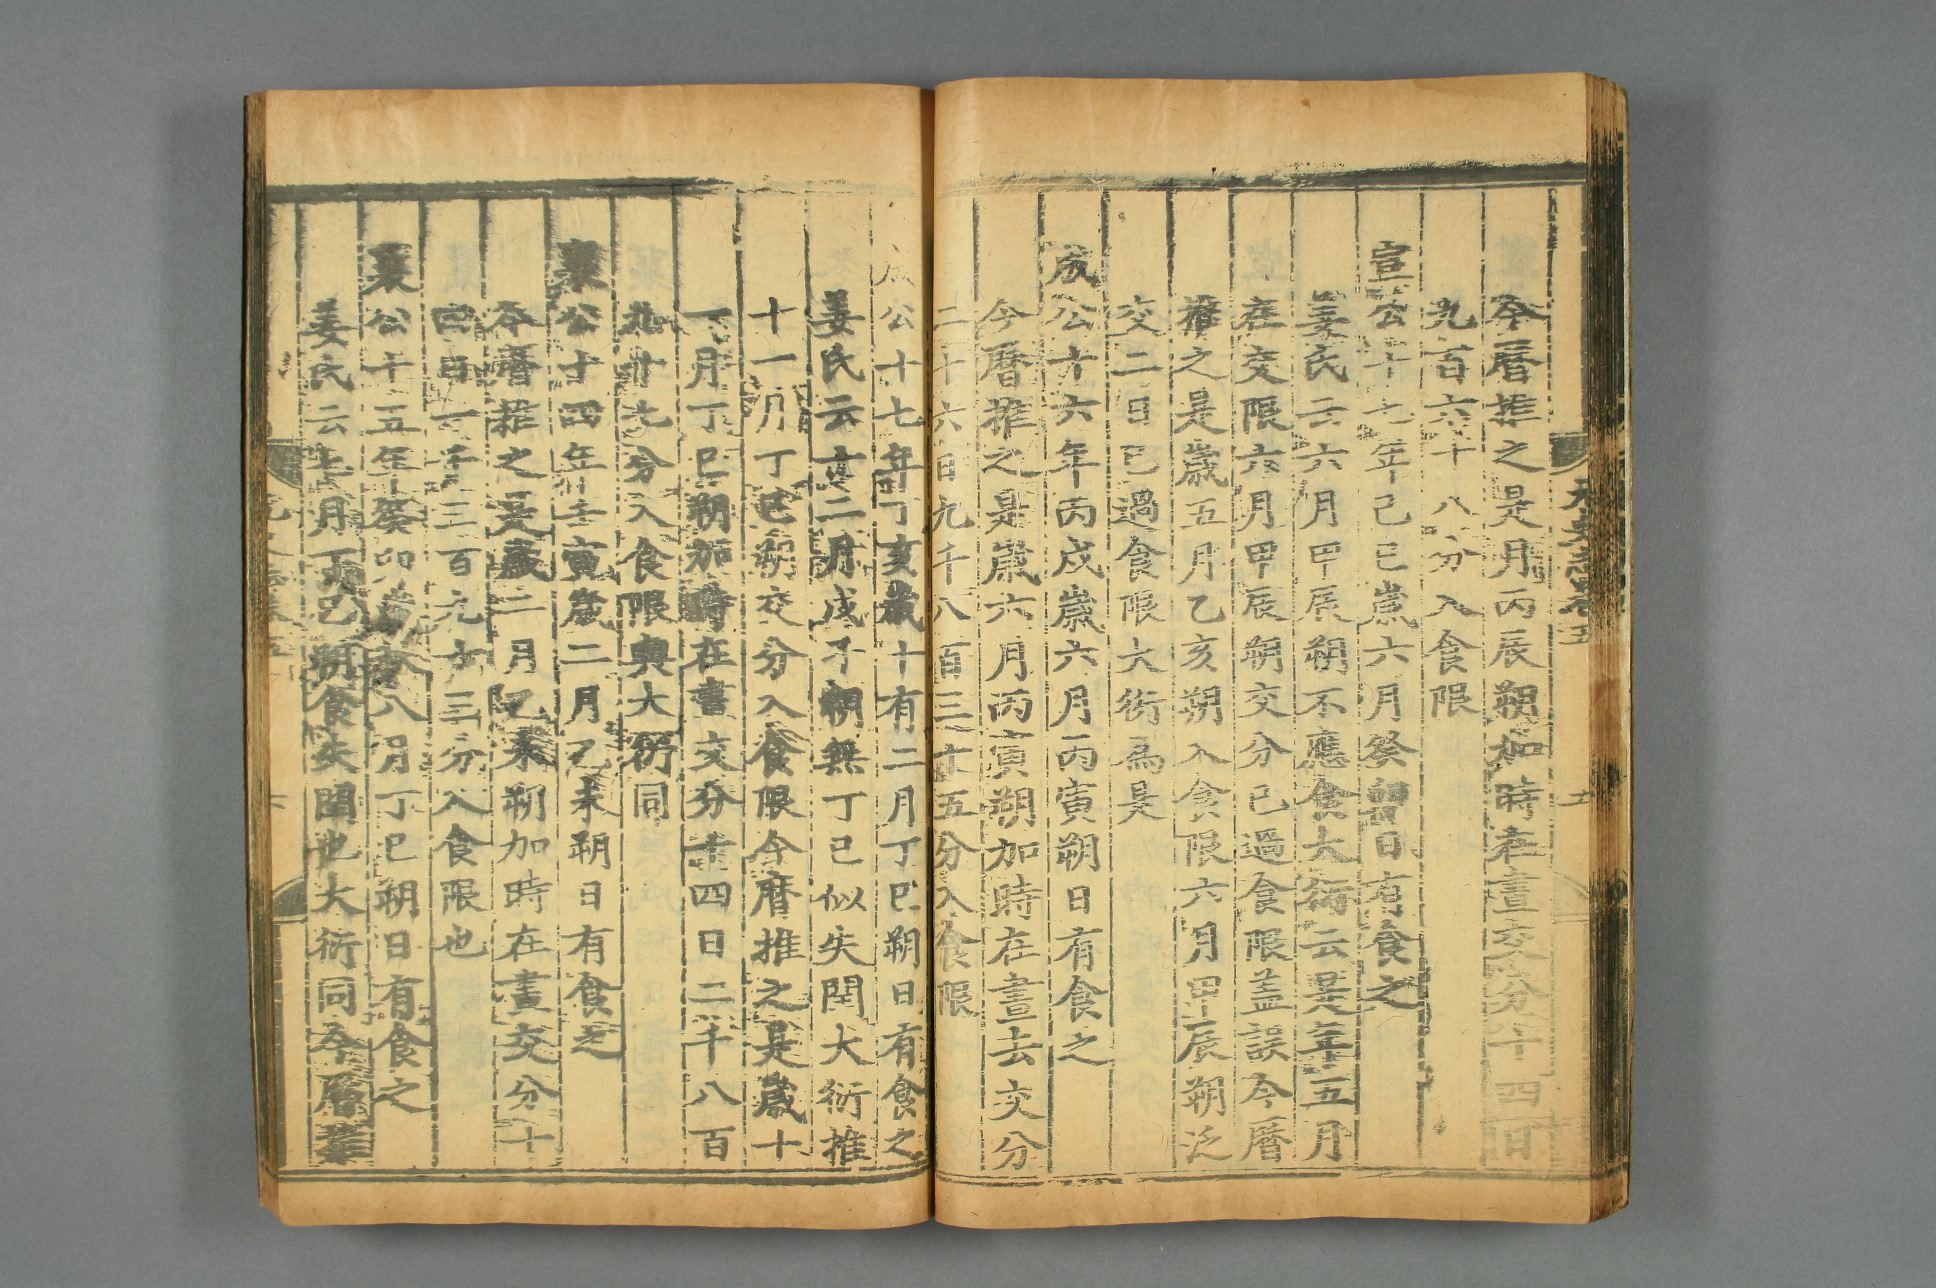 今曆推之是月丙辰朔加時在晝交分十四日
九百六十八分入食限
宣公十七年己巳歲六月癸卯日有食之
姜氏云六月甲辰朔不應食大衍云是年五月
在交限六月甲辰朔交分已過食限蓋誤今曆
推之是歲五月乙亥朔入食限六月甲辰朔泛
交二日已過食限大衍為是
成公十六年丙戌歲六月丙寅朔日有食之
今曆推之是歲六月丙寅朔加時在晝去交分
二十六日九千八百三十五分入食限
成公十七年丁亥歲十有二月丁巳朔日有食之
姜氏云十二月戊子朔無丁巳似失閏大衍推
十一月丁巳朔交分入食限今曆推之是歲十
一月丁巳朔加時在晝交分十四日二千八百
九十七分入食限與大衍同
襄公十四年壬寅歲二月乙未朔日有食之
今曆推之是歲二月乙未朔加時在晝交分十
四日一千三百九十三分入食限也
襄公十五年癸卯歲秋八月丁巳朔日有食之
姜氏云七月丁巳朔食失閏也大衍同今曆推